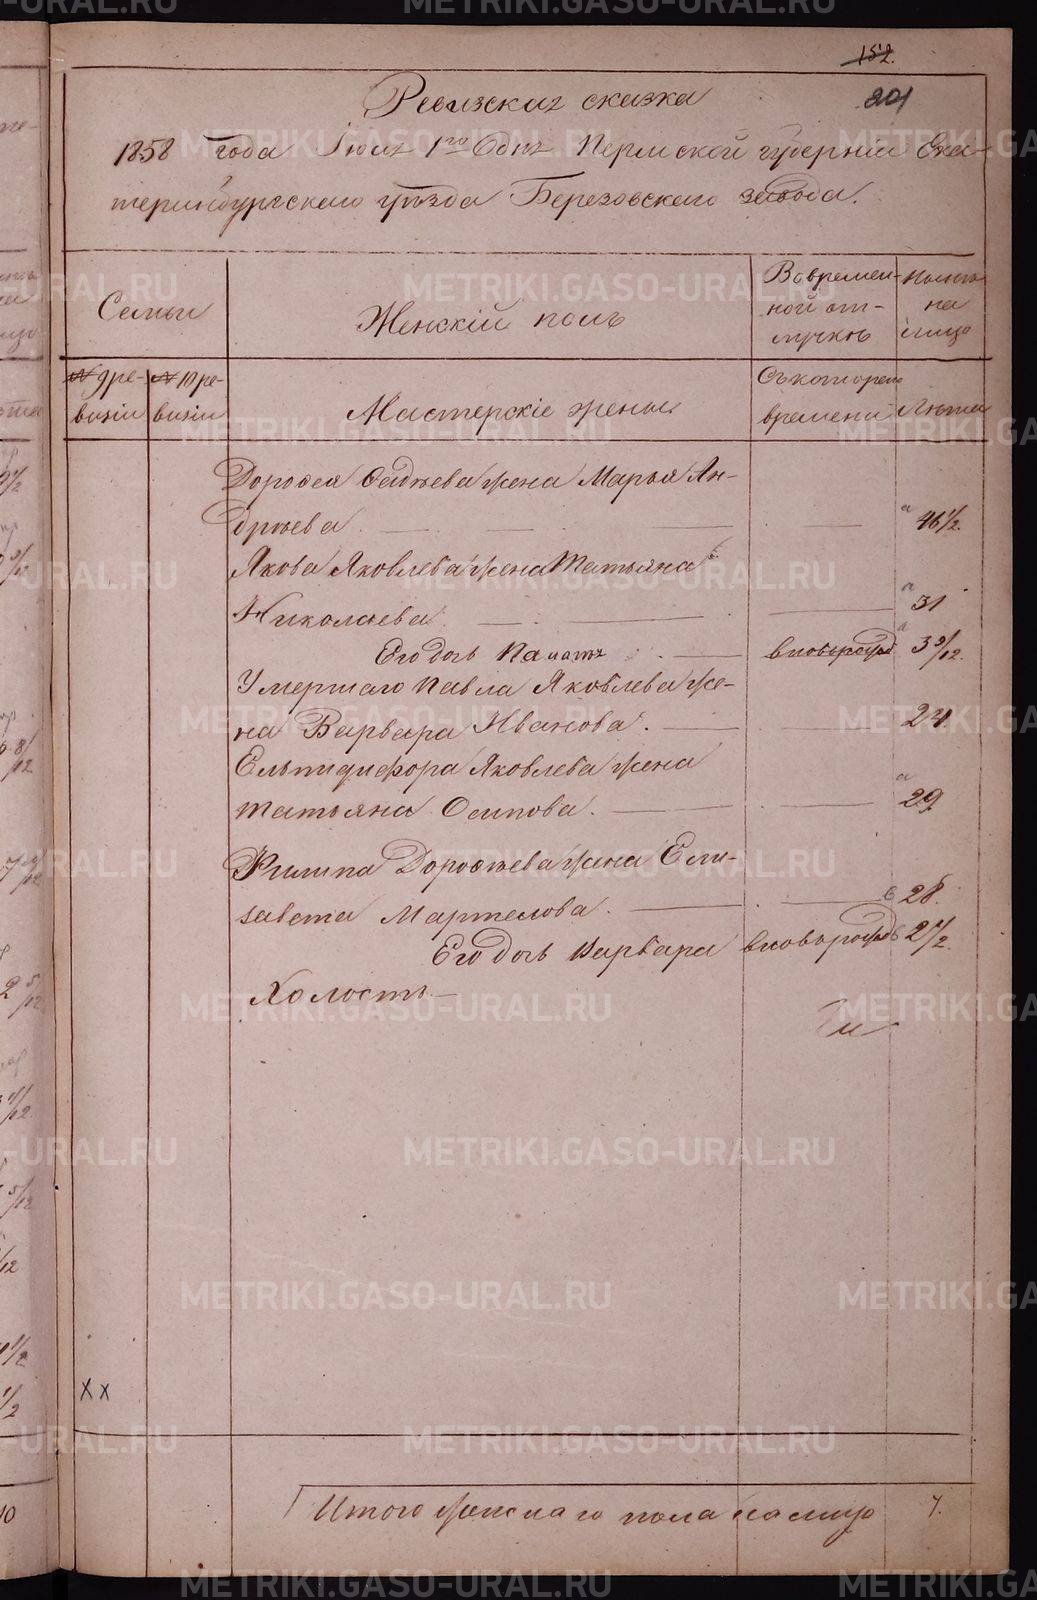 152.
201
Ревизская сказка
1858 года Июля 1го дня Пермской губернии Ека-
теринбургскаго уѣзда Березовскаго завода.
Семьи
Женскій полъ
Во времен-
ной от-
лучкѣ
на
лицо
№ 9 ре-
визіи
№ 10 ре-
визіи
Мастерскіе жены
Съ котораго
времени
Лѣта
Дорофея Фадѣева жена Марья Ан-
дрѣева 46 1/2.
Якова Яковлева жена Татьяна
Николаева 31
Его дочь вноворожд 3 9/12.
Умершаго Павла Яковлева же-
на Варвара Иванова. 24.
Елпидифора Яковлева жена
Татьяна Осипова. 29
Филипа Дорофѣева жена Ели-
завета Мартелова. 28.
Его дочь Варвара вноворожд 2 1/2.
Холостъ
XX
Итого женскаго пола на лицо 7.
METRIKI.GASO-URAL.RU